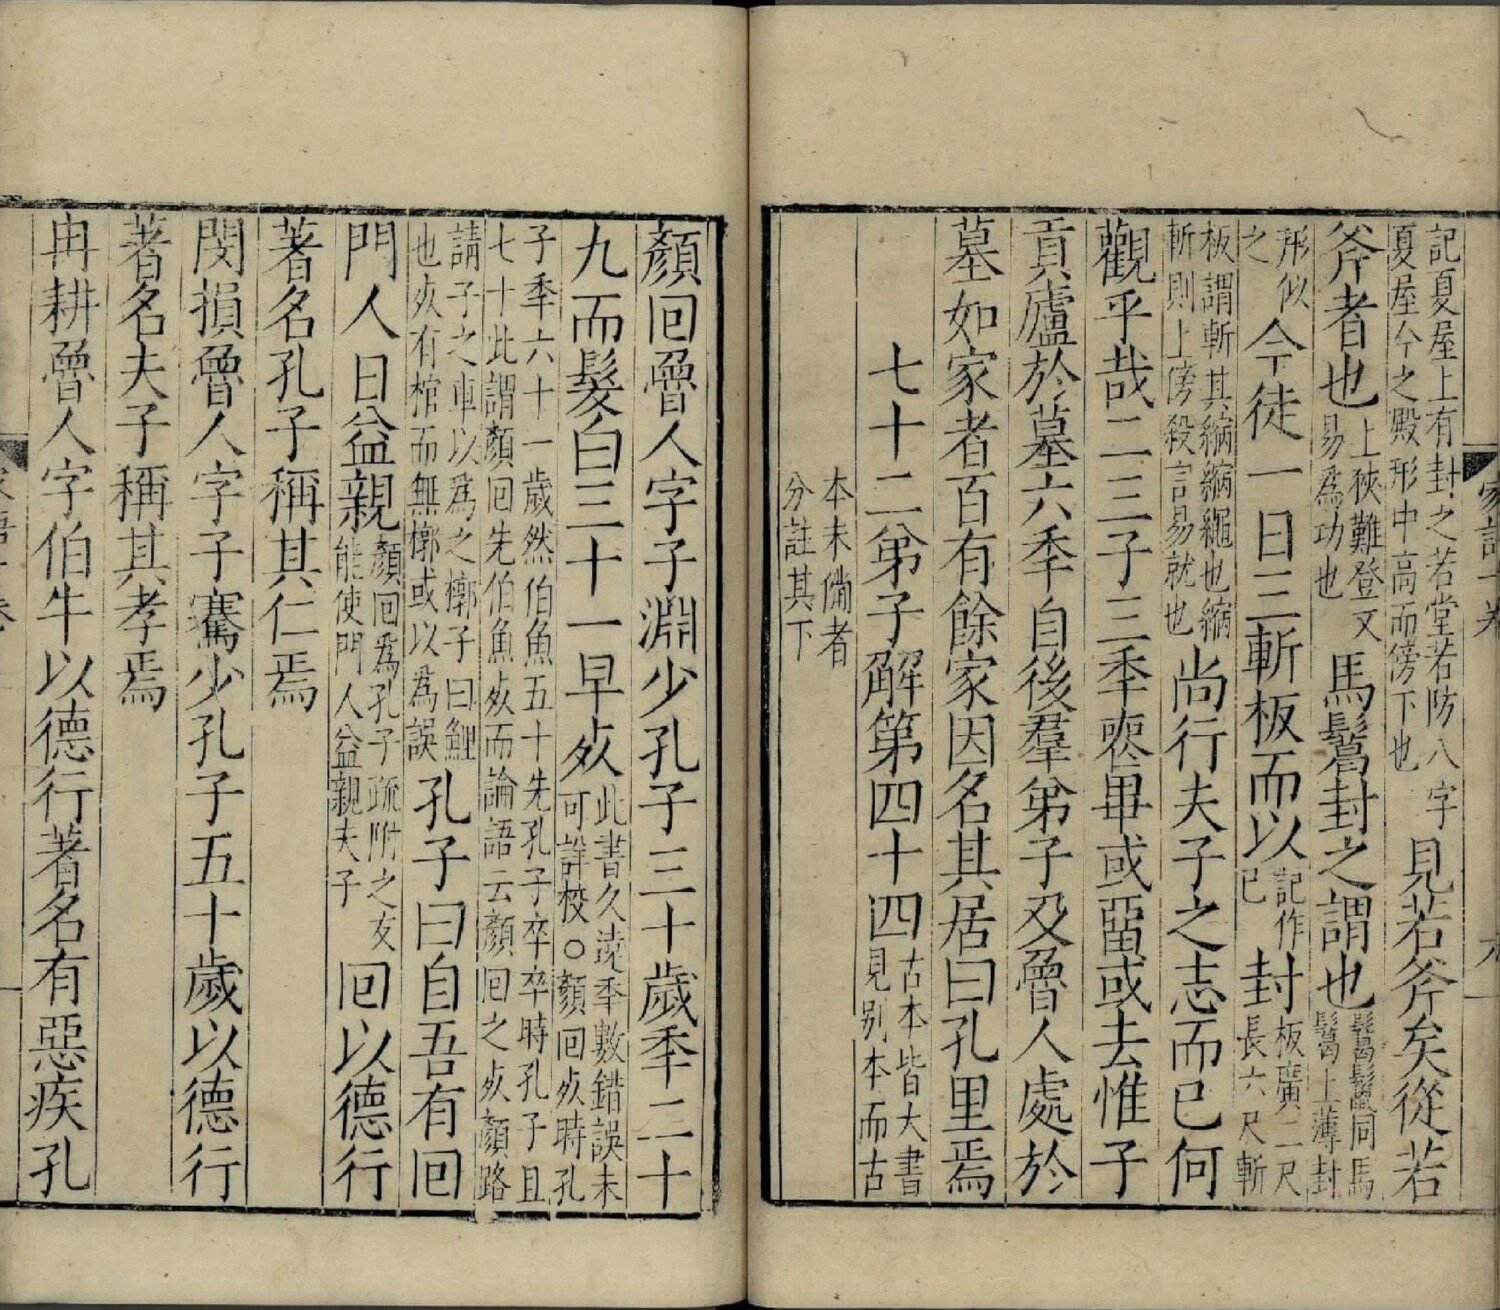 記夏屋上有封之若堂若防八字夏屋今之殿形中高而傍下也見若斧矣從若
斧者也上狹難登又易爲功也馬鬣封之謂也鬣鬛同馬鬣上薄封
形似之今徒一日三斬板而以記作已封板廣二尺長六尺斬
板謂斬其縮縮繩也縮斬則上傍殺言易就也尚行夫子之志而已何
觀乎哉二三子三季喪畢或畱或去惟子
貢廬於墓六季自後羣弟子及魯人處於
墓如家者百有餘家因名其居曰孔里焉
七十二弟子解第四十四古本皆大書見别本而古
本未備者分註其下
顏回魯人字子淵少孔子三十歲季二十
九而髮白三十一早歿此書久遠季數錯誤未可詳校○顏回歿時孔
子季六十一歲然伯魚五十先孔子卒卒時孔子且七十此謂顏回先伯魚歿而論語云顏回之歿顏路
請子之車以爲之槨子曰鯉也歿有棺而無槨或以爲誤孔子曰自吾有回
門人日益親顏回爲孔子疏附之友能使門人益親夫子回以德行
著名孔子稱其仁焉
閔損魯人字子騫少孔子五十歲以德行
著名夫子稱其孝焉
冉耕魯人字伯牛以德行著名有惡疾孔